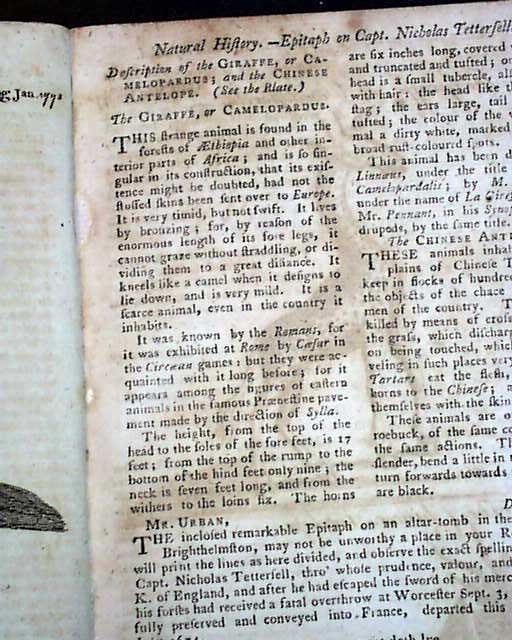 g, Jan. 1772
Natural History. —Epitaph on Capt. Nicholas Tettersell
Description of the GIRAFFE, or CA-
MELOPARDUS; and the CHINESE
ANTELOPE. (See the Plate.)
The GIRAFFE, or CAMELOPARDUS.
THIS strange animal is found in the
forests of Æthiopia and other in-
terior parts of Africa; and is so sin-
gular in its construction, that its exis-
tence might be doubted, had not the
stuffed skins been sent over to Europe.
It is very timid, but not swift. It lives
by brouzing; for, by reason of the
enormous length of its fore legs, it
cannot graze without straddling, or di-
viding them to a great distance. It
kneels like a camel when it designs to
lie down, and is very mild. It is a
scarce animal, even in the country it
inhabits.
It was known by the Romans, for
it was exhibited at Rome by Cæsar in
the Circæan games: but they were ac-
quainted with it long before; for it
appears among the figures of eastern
animals in the famous Prænestine pave-
ment made by the direction of Sylla.
The height, from the top of the
head to the soles of the fore feet, is 17
feet; from the top of the rump to the
bottom of the hind feet only nine; the
neck is seven feet long, and from the
withers to the loins six. The horns
are six inches long, covered
and truncated and tufted; or
head is a small tubercle, al
with hair: the head like th
stag; the ears large, tail
tufted; the colour of the
mal a dirty white, marked
broad rust-coloured spots.
This animal has been d
Linnæus, under the title
Camelopardalis; by M.
under the name of La Gira
Mr. Pennant, in his Synop
drupeds, by the same title.
The CHINESE ANT
THESE animals inhab
plains of Chinese T
keep in flocks of hundred
the objects of the chace
men of the country. T
killed by means of cross
the grass, which discharg
on being touched, which
veling in such places very
Tartars eat the flesh,
horns to the Chinese; a
themselves with the skin
These animals are o
roebuck, of the same co
the same actions. Th
slender, bend a little in
turn forwards towards
are black.
MR. URBAN,
THE inclosed remarkable Epitaph on an altar-tomb in the
Brighthelmston, may not be unworthy a place in your R
will print the lines as here divided, and observe the exact spelling
Capt. Nicholas Tettersell, thro' whose prudence, valour, and
K. of England, and after he had escaped the sword of his merc
his forses had received a fatal overthrow at Worcester Sept. 3,
fully preserved and conveyed into France, departed this